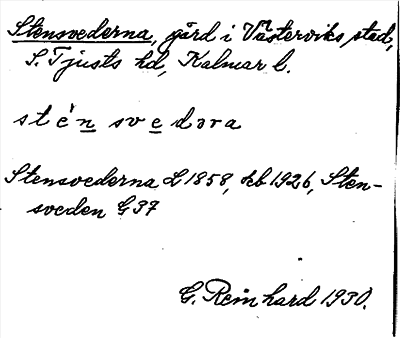 Stensvederna, gård i Västerviks stad,
S. Tjusts hd, Kalmar l.
sté'n svedəra
Stensvederna L 1858, Jb 1926, Sten-
sveden G 37
G. Reinhard 1930.